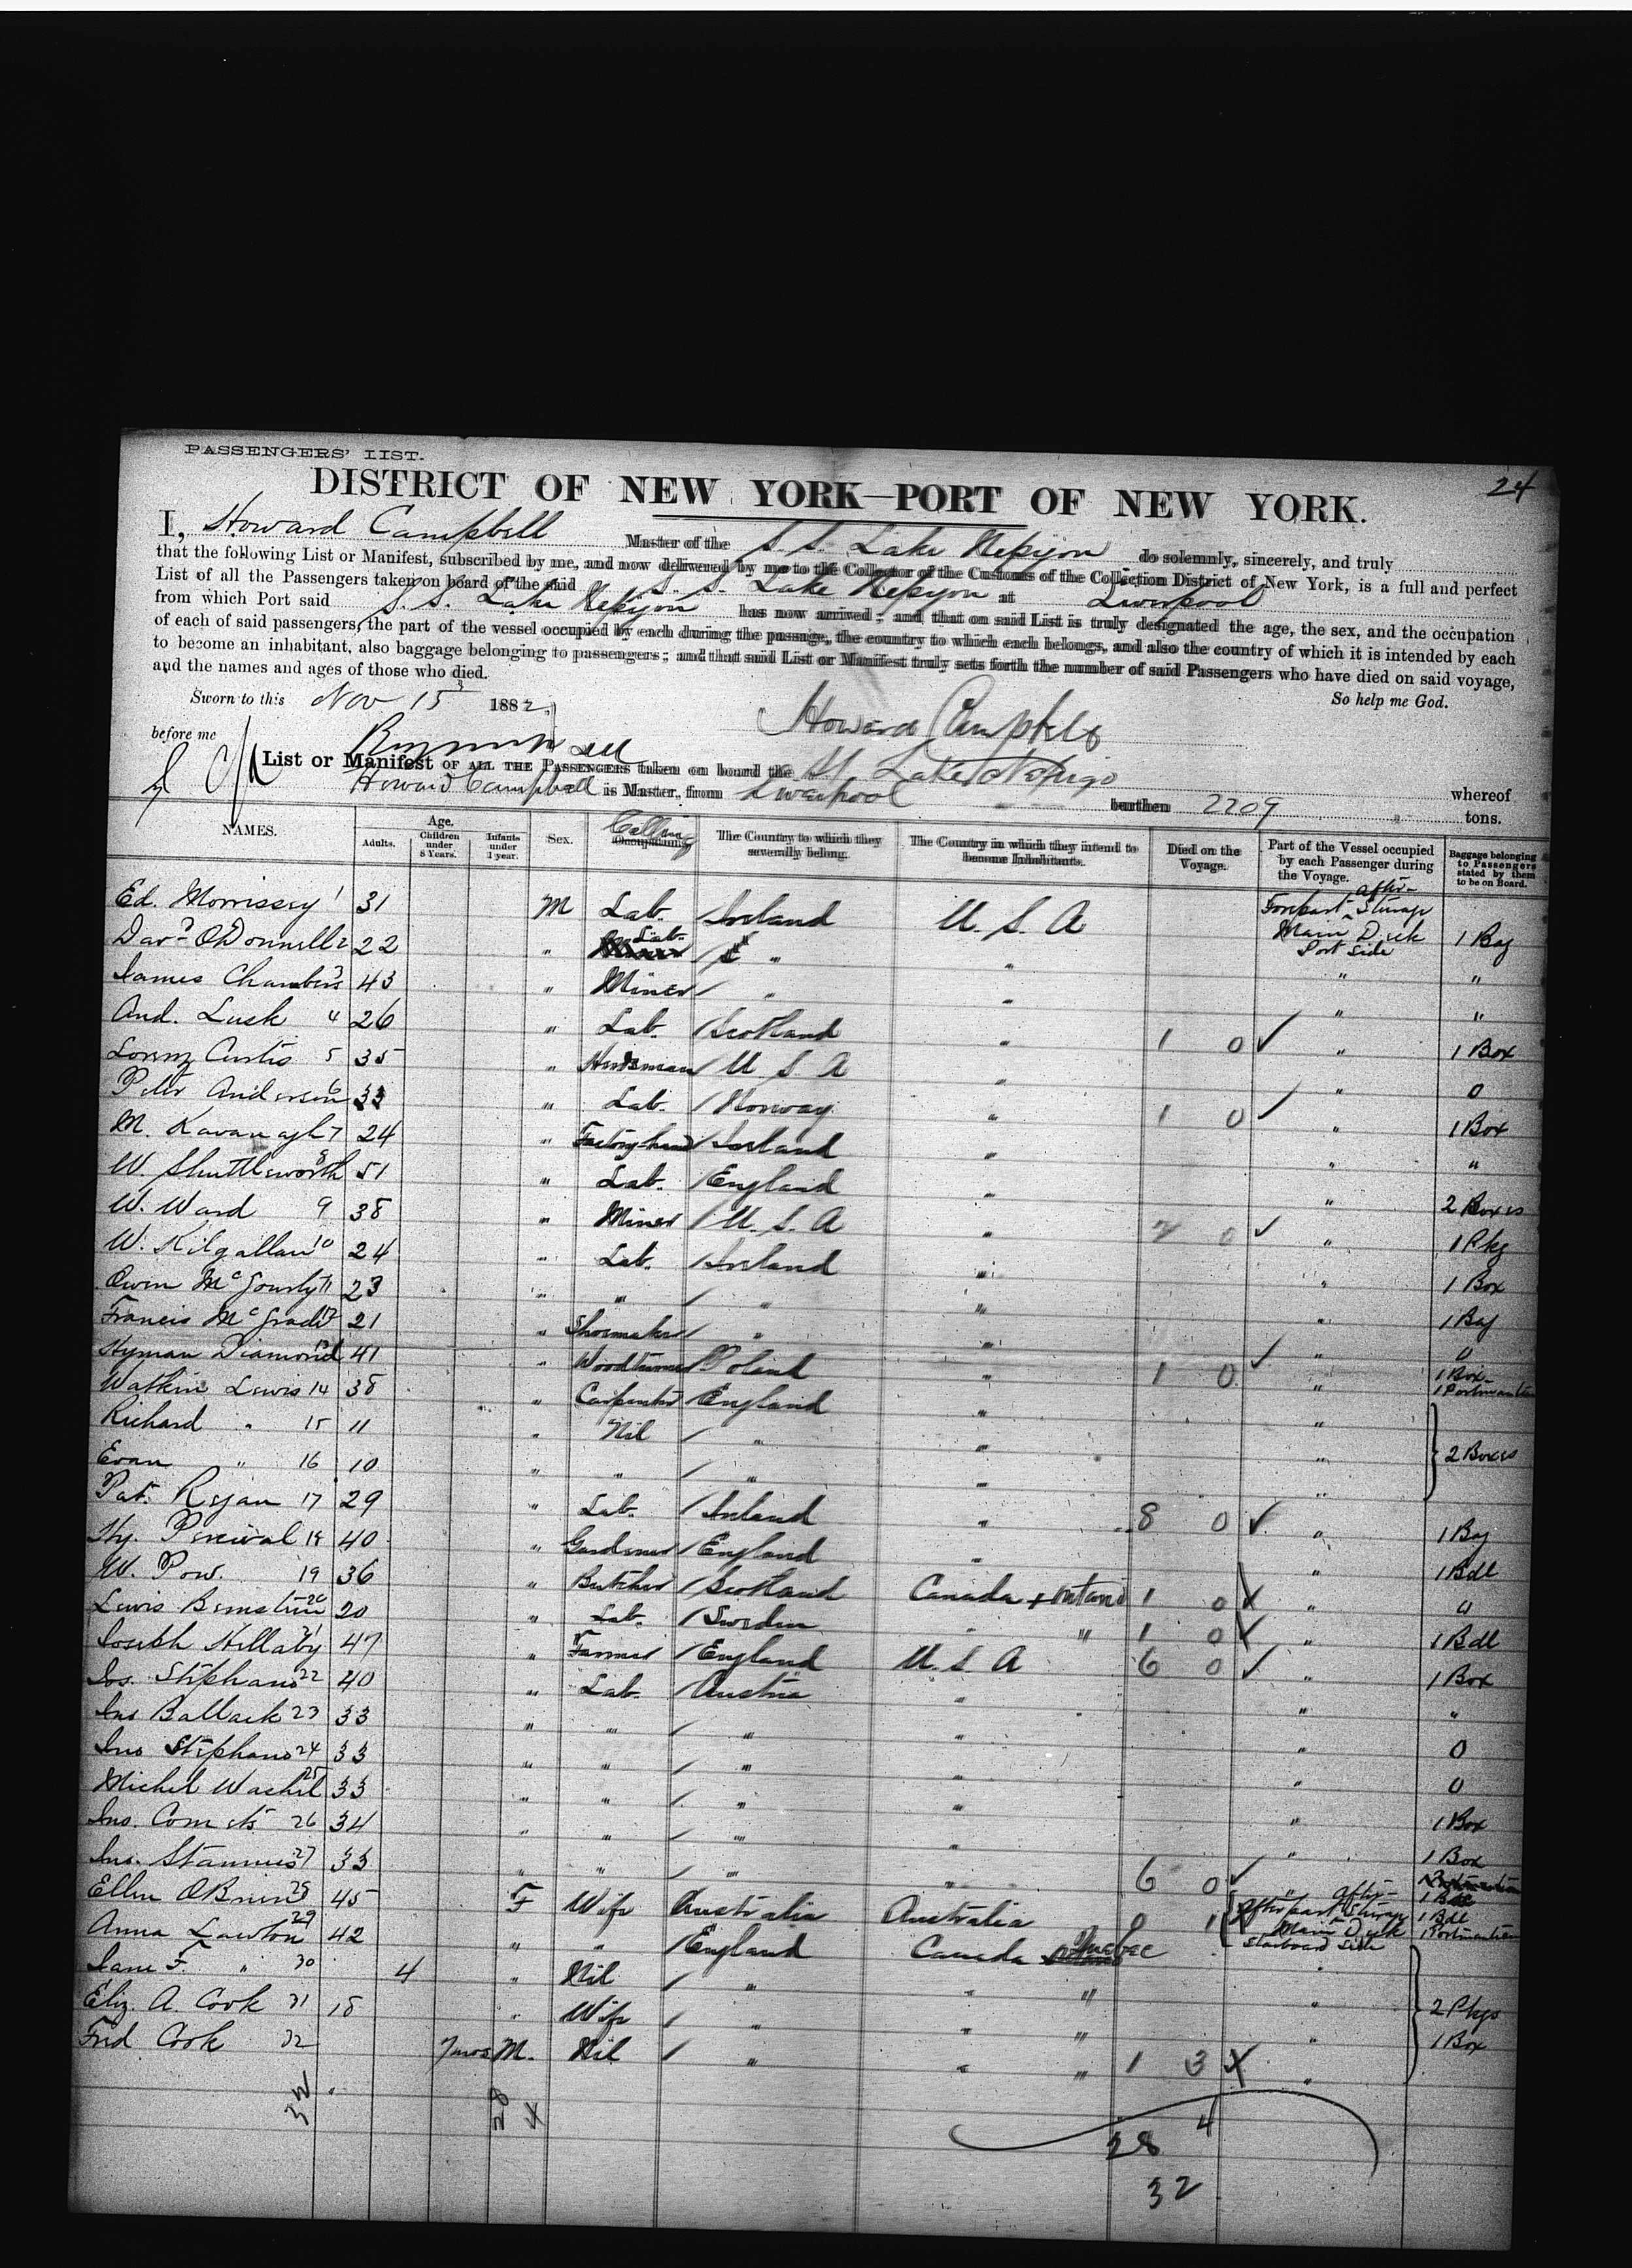 PASSENGERS' LIST.
24
DISTRICT OF NEW YORK—PORT OF NEW YORK.
I, Howard Campbell Master of the S. S. Lake Nepigon do solemnly, sincerely, and truly
that the following List or Manifest, subscribed by me, and now delivered by me to the Collector of the Customs of the Collection District of New York, is a full and perfect
List of all the Passengers taken on board of the said S. S. Lake Nepigon at Liverpool
from which Port said S. S. Lake Nepigon has now arrived; and that on said List is truly designated the age, the sex, and the occupation
of each of said passengers, the part of the vessel occupied by each during the passage, the country to which each belongs, and also the country of which it is intended by each
to become an inhabitant, also baggage belonging to passengers; and that said List or Manifest truly sets forth the number of said Passengers who have died on said voyage,
and the names and ages of those who died.
So help me God.
Sworn to this Nov 15 1882
Howard Campbell
before me
List or Manifest OF ALL THE PASSENGERS taken on board the SS Lake Nepigo whereof
Howard Campbell is Master, from Liverpool burthen 2209 tons.
NAMES. Age. Adults. Children under 8 Years. Infants under 1 year. Sex. Calling Occupation The Country to which they severally belong. The Country in which they intend to become Inhabitants. Died on the Voyage. Part of the Vessel occupied by each Passenger during the Voyage. Baggage belonging to Passengers stated by them to be on Board.
Ed. Morrissey 1 31 M Lab. Ireland U. S. A Forepart after Steerage Main Deck Port Side 1 Bag
Davd O'Donnell 2 22 " Lab. " " " "
James Chambers 3 43 " Miner " " " "
And. Lusk 4 26 " Lab. Scotland " 1 0 ✓ " 1 Box
Lorenz Curtis 5 35 " Herdsman U S A " " 0
Peter Anderson 6 33 " Lab. Norway " 1 0 ✓ " 1 Box
M. Kavanagh 7 24 " Factory hand Ireland " " "
W. Shuttleworth 8 51 " Lab. England " " 2 Boxes
W. Ward 9 38 " Miner U. S. A " 2 0 ✓ " 1 Pkg
W. Kilgallan 10 24 " Lab. Ireland " " 1 Box
Owen McGourly 11 23 " " " " " 1 Bag
Francis McGrade 12 21 " Shoemaker " " " "
Hyman Diamond 13 41 " Woodturner Poland " 1 0 ✓ " 1 Box 1 Portmanteau
Watkin Lewis 14 38 " Carpenter England " "
Richard " 15 11 " Nil " " " 2 Boxes
Evan " 16 10 " " " " "
Pat. Regan 17 29 " Lab. Ireland " 8 0 ✓ " 1 Bag
Hy. Percival 18 40 " Gardener England " " 1 Bdl
W. Pow. 19 36 " Butcher Scotland Canada Ontario 1 0 X " "
Lewis Bernstein 20 20 " Lab. Sweden " " 1 0 X " 1 Bdl
Joseph Hillaby 21 47 " Farmer England U. S. A 6 0 ✓ " 1 Box
Jos. Stephans 22 40 " Lab. Austria " " "
Jno Ballack 23 33 " " " " " 0
Jno Stephans 24 33 " " " " " 0
Michel Washil 25 33 " " " " " 1 Box
Jno. 26 34 " " " " " 1 Box
Jno. 27 33 " " " " 6 0 ✓ "
Ellen OBrien 28 45 F Wife Australia Australia 0 1 Afterpart after Steerage Main Deck Starboard Side 1 Bdl 1 Portmanteau
Anna Lawton 29 42 " " England Canada Quebec
Jane F. " 30 4 " Nil " " " "
Eliz. A. Cook 31 18 " Wife " " " " 2 Pkgs
Fred Cook 32 7 mos M. Nil " " " 1 3 X " 1 Box
32
28
4
28 4
32